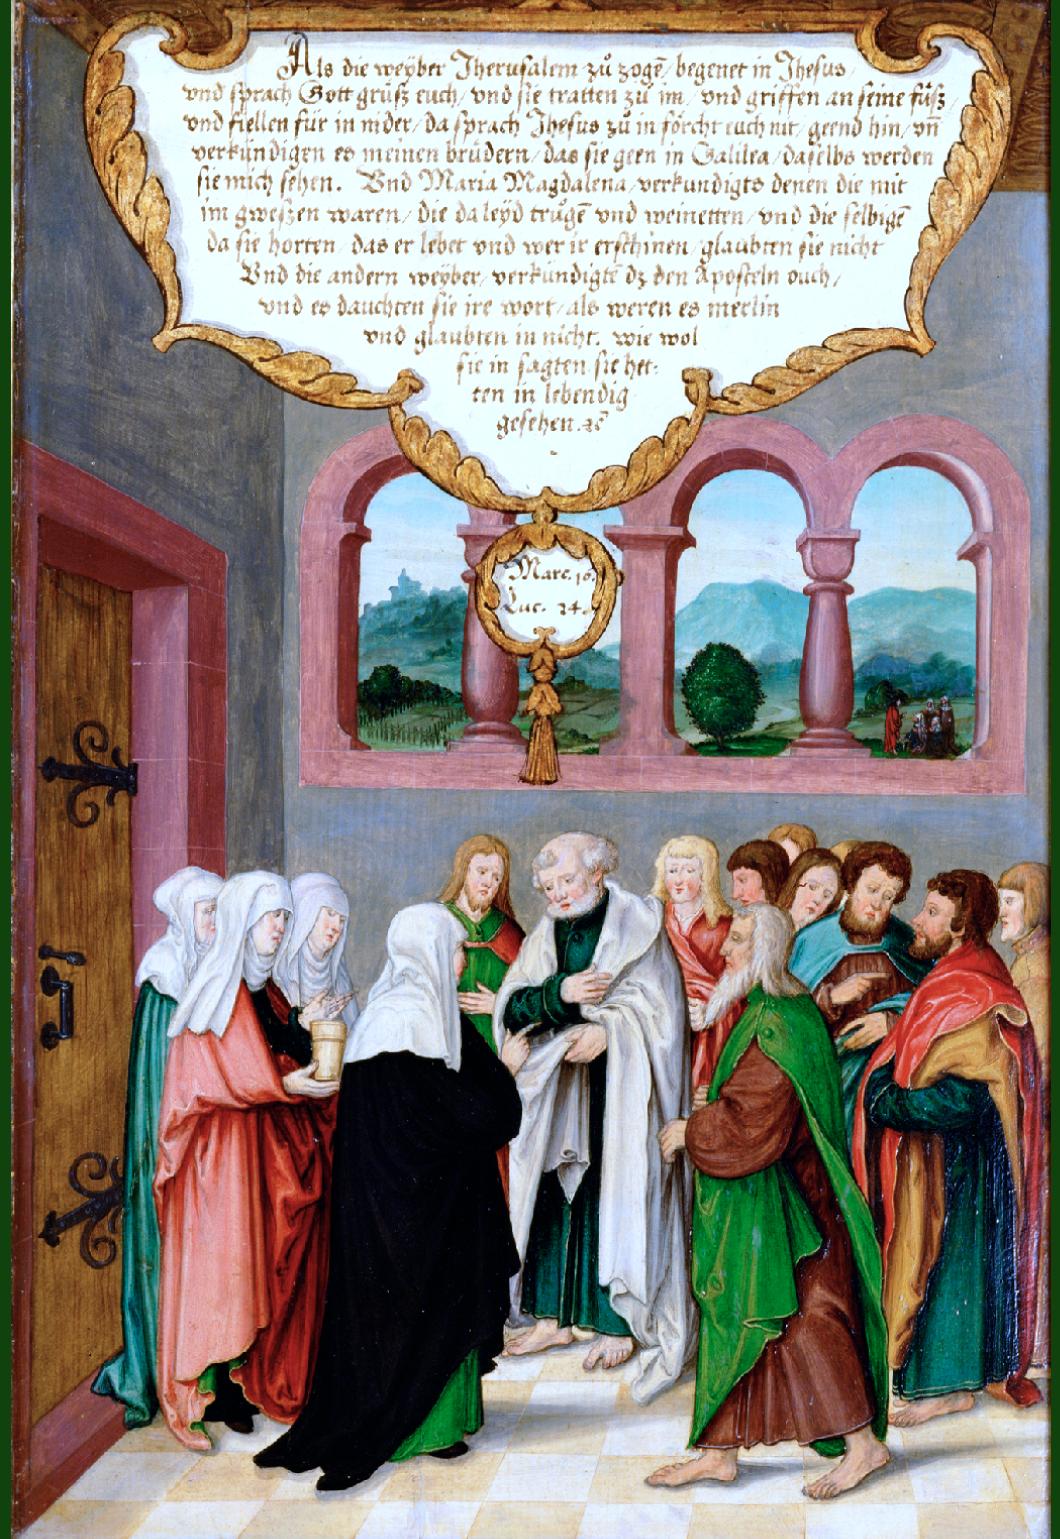 Als die weÿber Jherusalem zů zogē / begenet in Jhesus /
vnd sprach Gott grüsz euch / vnd sie tratten zů im / vnd griffen an seine füsz /
vnd fiellen für in nider / da sprach Jhesus zů in förcht euch nit / geend hin / vn̄
verkündigen es meinen brüdern / das sie geen in Galilea / daselbs werden
sie mich sehen. Vnd Maria Magdalena / verkundigts denen die mit
im gweszen waren / die da leÿd trůgē vnd weinetten / vnd die selbigē
da sie horten / das er lebet vnd wer ir erschinen / glaubten sie nicht
Vnd die andern weÿber / verkündigtē dz den Aposteln ouch /
vnd es dauchten sie ire wort / als weren es merlin
vnd glaubten in nicht. wie wol
sie in sagten sie het:
ten in lebendig
gesehen. ꝛc̄
Marc. 16.
Luc. 24.